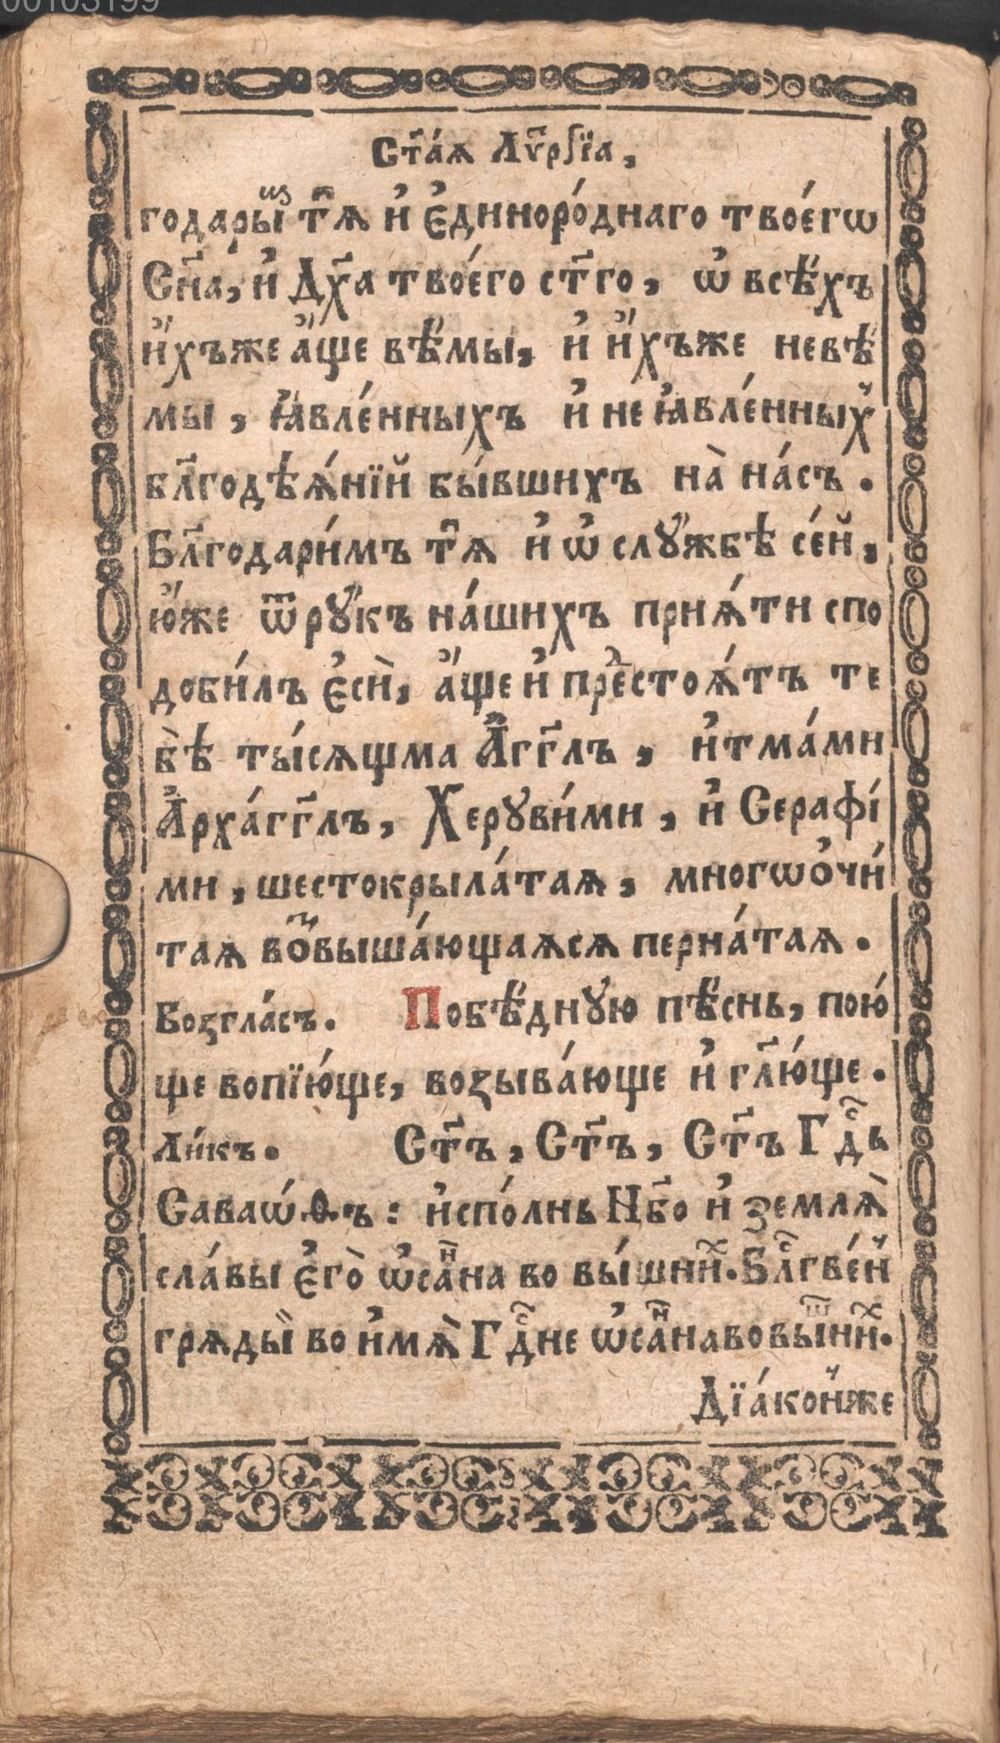 00103199
Ст҃а́ѧ Лѵ҃ргі́а,
годары́мъ тѧ̀ и҆ є҆диноро́днаго твоегѡ̀
Сн҃а, и҆ Дх҃а твоего̀ ст҃го, ѡ҆ всѣ́хъ
и҆́хъже а҆́ще вѣ́мы, и҆ и҆́хъже невѣ́
мы, ꙗ҆вле́нныхъ и҆ не ꙗ҆вле́нныхъ
бл҃годѣѧ́нїй бы́вшихъ на̀ на́съ.
Бл҃годари́мъ тѧ̀ и҆ ѡ҆ слꙋ́жбѣ се́й,
ю҆́же ѿ рꙋ́къ на́шихъ прїѧ́ти спо
доби́лъ є҆сѝ, а҆́ще и҆ пре́стоѧ́тъ те
бѣ̀ ты́сѧщма А҆́гг҃лъ, и҆ тма́ми
А҆рха́гг҃лъ, Херꙋви́ми, и҆ Серафі́
ми, шестокрыла́таѧ, многѡо҆чи́
таѧ возвыша́ющаѧсѧ перна́таѧ.
Возгла́съ. Побѣ́днꙋю пѣ́снь, пою́
ще вопїю́ще, возыва́юще и҆ гл҃ю́ще.
Ли́къ. Ст҃ъ, Ст҃ъ, Ст҃ъ Гд҃ь
Саваѡ́ѳъ: и҆спо́лнь Нб҃о и҆ землѧ̀
сла́вы є҆го̀ ѡ҆са́нна во вы́шних. Бл҃гве́н
грѧды́й во и҆́мѧ Гд҃не ѡ҆са́нна во вы́шних.
Дїа́конже